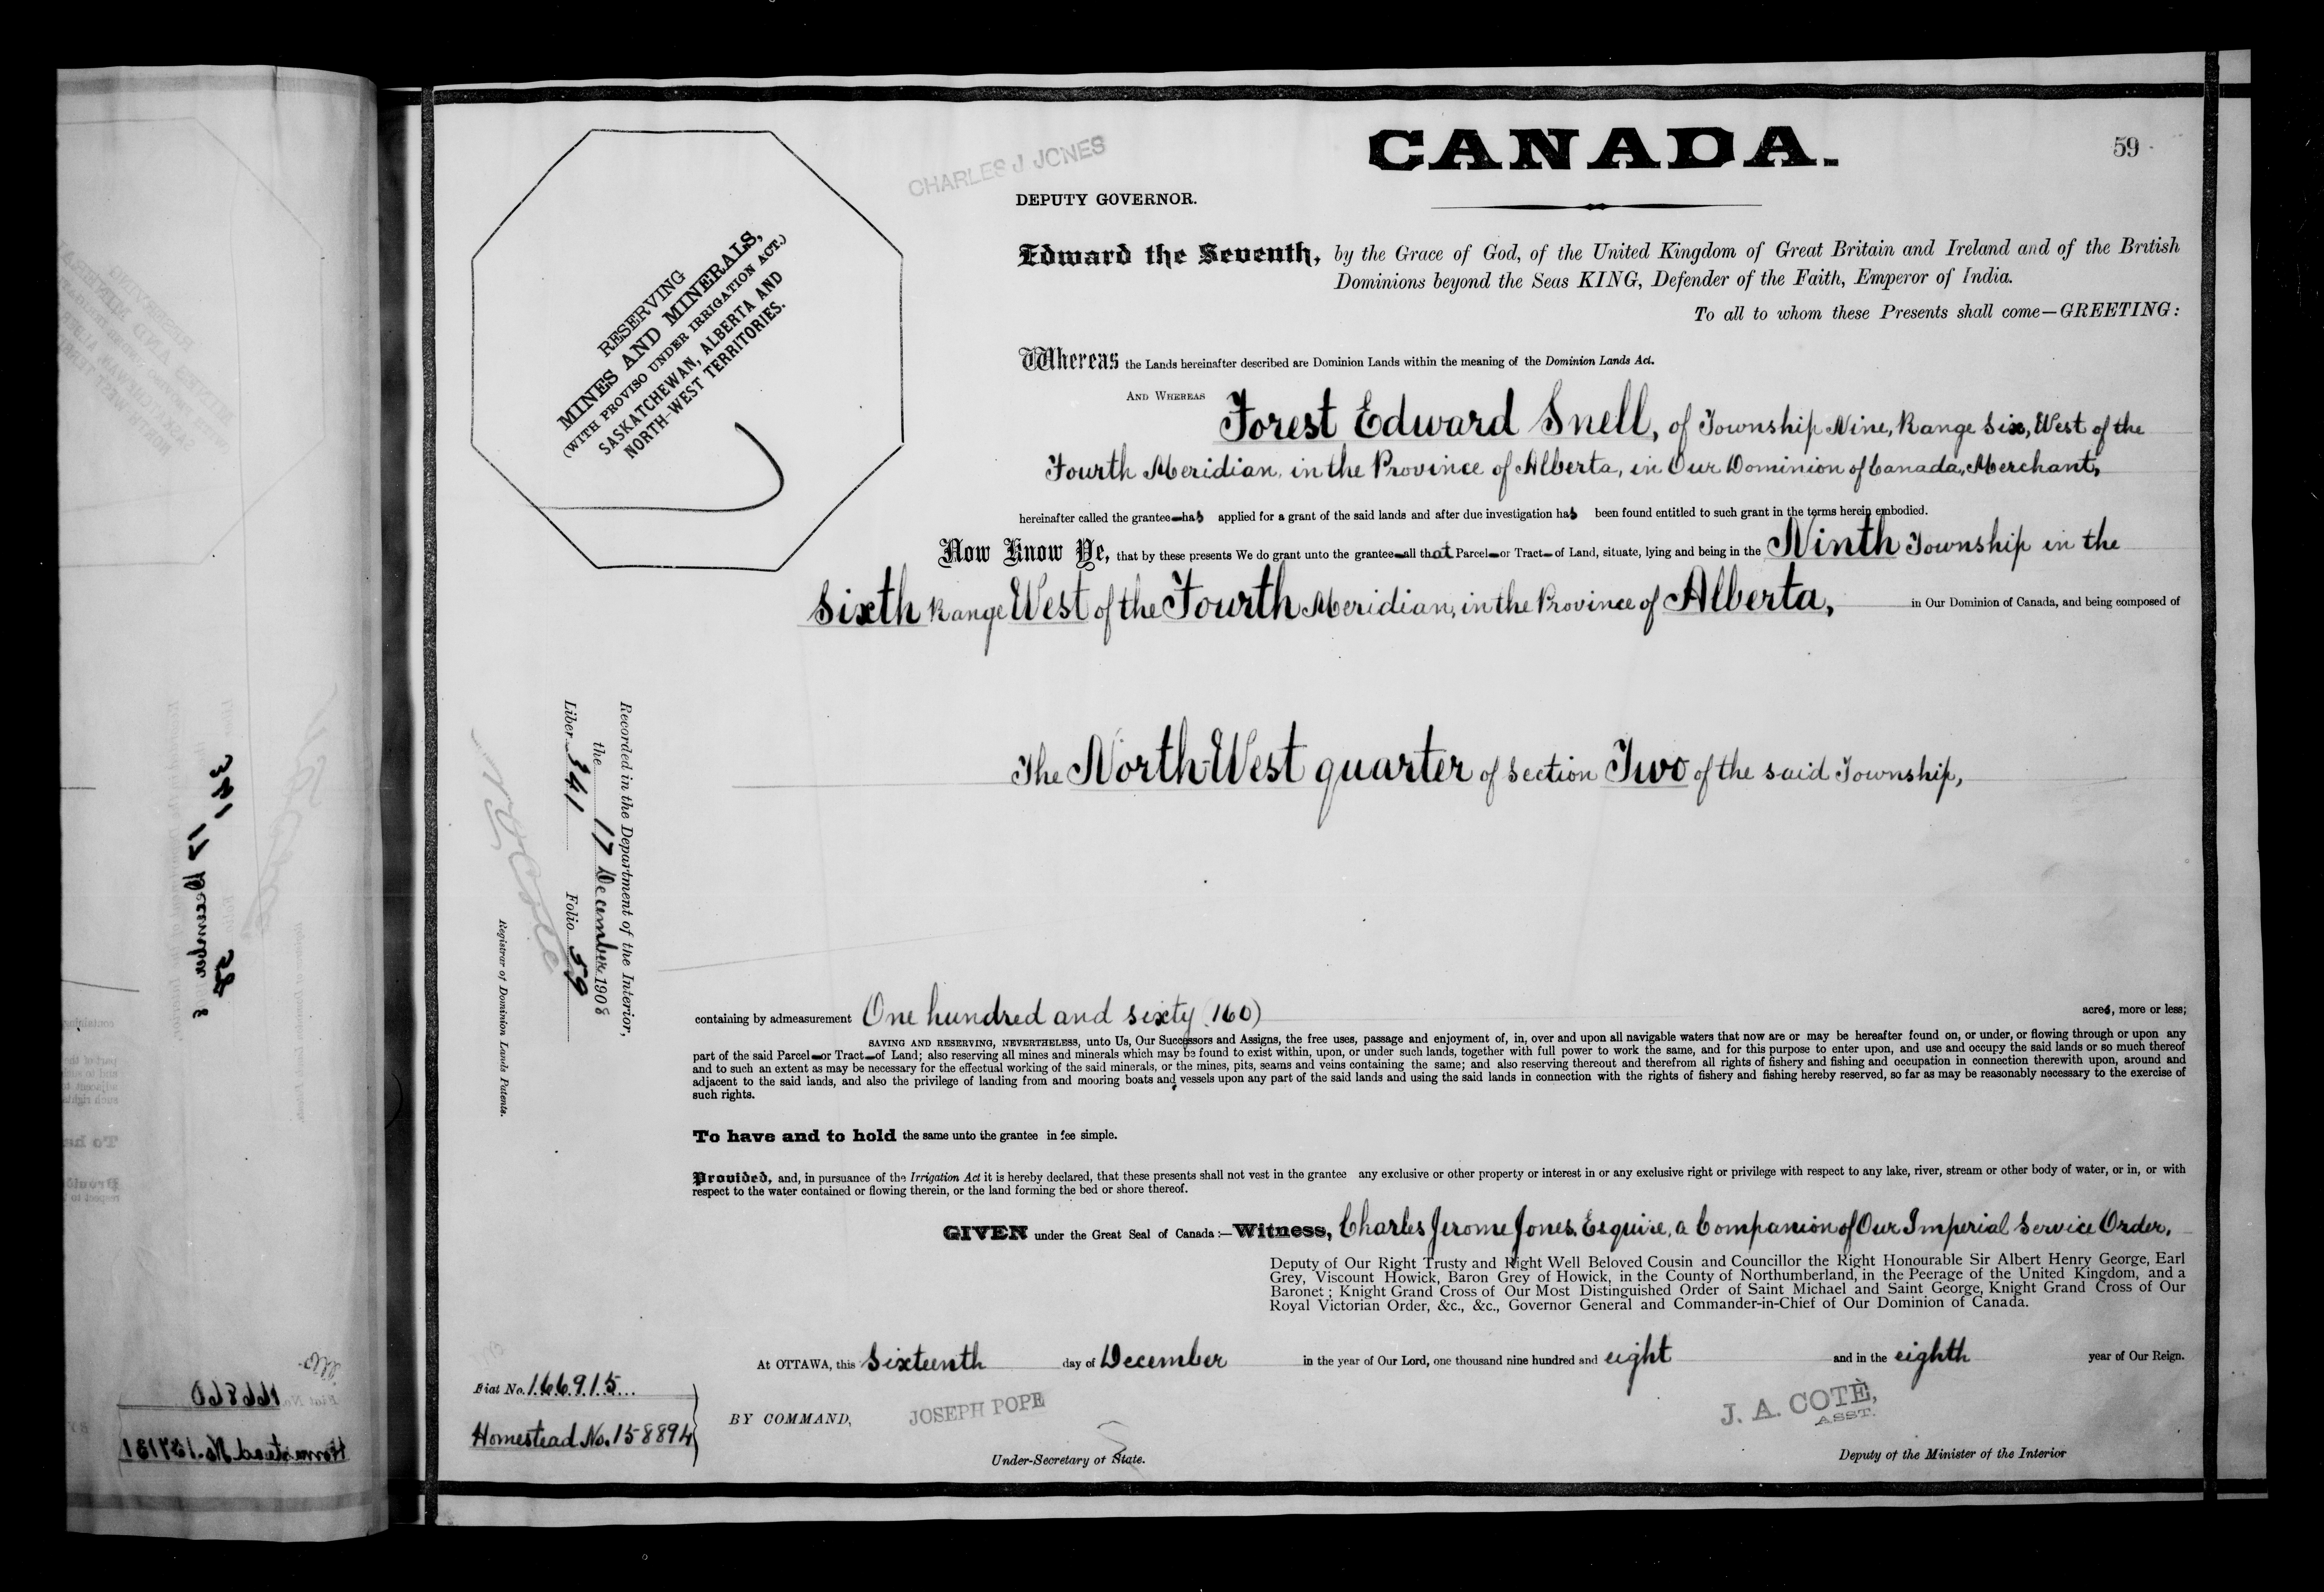 CANADA.
59
CHARLES J JONES
DEPUTY GOVERNOR.
RESERVING
MINES AND MINERALS,
(WITH PROVISO UNDER IRRIGATION ACT.)
SASKATCHEWAN, ALBERTA AND
NORTH-WEST TERRITORIES.
Edward the Seventh, by the Grace of God, of the United Kingdom of Great Britain and Ireland and of the British
Dominions beyond the Seas KING, Defender of the Faith, Emperor of India.
To all to whom these Presents shall come—GREETING:
Whereas the Lands hereinafter described are Dominion Lands within the meaning of the Dominion Lands Act.
AND WHEREAS Forest Edward Snell, of Township Nine, Range Six, West of the
Fourth Meridian, in the Province of Alberta, in Our Dominion of Canada, Merchant,
hereinafter called the grantee has applied for a grant of the said lands and after due investigation has been found entitled to such grant in the terms herein embodied.
Now Know Ye, that by these presents We do grant unto the grantee all that Parcel or Tract of Land, situate, lying and being in the Ninth Township in the
Sixth Range West of the Fourth Meridian, in the Province of Alberta, in Our Dominion of Canada, and being composed of
The North-West quarter of Section Two of the said Township,
Recorded in the Department of the Interior,
the 17 December 1908
Liber 341 Folio 59
Registrar of Dominion Lands Patents.
containing by admeasurement One hundred and sixty (160) acres, more or less;
SAVING AND RESERVING, NEVERTHELESS, unto Us, Our Successors and Assigns, the free uses, passage and enjoyment of, in, over and upon all navigable waters that now are or may be hereafter found on, or under, or flowing through or upon any
part of the said Parcel or Tract of Land; also reserving all mines and minerals which may be found to exist within, upon, or under such lands, together with full power to work the same, and for this purpose to enter upon, and use and occupy the said lands or so much thereof
and to such an extent as may be necessary for the effectual working of the said minerals, or the mines, pits, seams and veins containing the same; and also reserving thereout and therefrom all rights of fishery and fishing and occupation in connection therewith upon, around and
adjacent to the said lands, and also the privilege of landing from and mooring boats and vessels upon any part of the said lands and using the said lands in connection with the rights of fishery and fishing hereby reserved, so far as may be reasonably necessary to the exercise of
such rights.
To have and to hold the same unto the grantee in fee simple.
Provided, and, in pursuance of the Irrigation Act it is hereby declared, that these presents shall not vest in the grantee any exclusive or other property or interest in or any exclusive right or privilege with respect to any lake, river, stream or other body of water, or in, or with
respect to the water contained or flowing therein, or the land forming the bed or shore thereof.
GIVEN under the Great Seal of Canada:—Witness, Charles Jerome Jones, Esquire, a Companion of Our Imperial Service Order,
Deputy of Our Right Trusty and Right Well Beloved Cousin and Councillor the Right Honourable Sir Albert Henry George, Earl
Grey, Viscount Howick, Baron Grey of Howick, in the County of Northumberland, in the Peerage of the United Kingdom, and a
Baronet; Knight Grand Cross of Our Most Distinguished Order of Saint Michael and Saint George, Knight Grand Cross of Our
Royal Victorian Order, &c., &c., Governor General and Commander-in-Chief of Our Dominion of Canada.
At OTTAWA, this Sixteenth day of December in the year of Our Lord, one thousand nine hundred and eight and in the eighth year of Our Reign.
Fiat No. 166915
Homestead No. 158894
BY COMMAND,
JOSEPH POPE
Under-Secretary of State.
J. A. COTÈ,
ASST.
Deputy of the Minister of the Interior